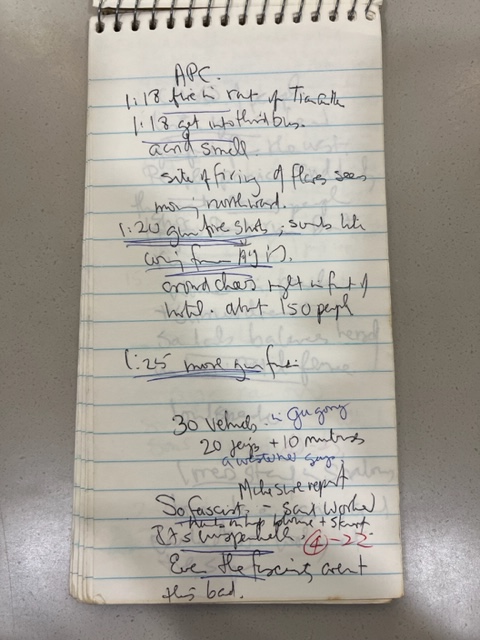 APC.
1:18 fire in front of Tiananmen
1:18 get into third bus.
acrid smell.
site of firing of flares seems
moving northward.
1:20 gunfire shots, sounds like
coming from
crowd cheers right in front of
hotel. about 150 people
1:25 more gunfire
30 vehicles in Gugong
20 jeeps + 10 minibuses
a westerner says
Make sure report
So fascist, - said worker
④-22
Even the fascists arent
this bad.